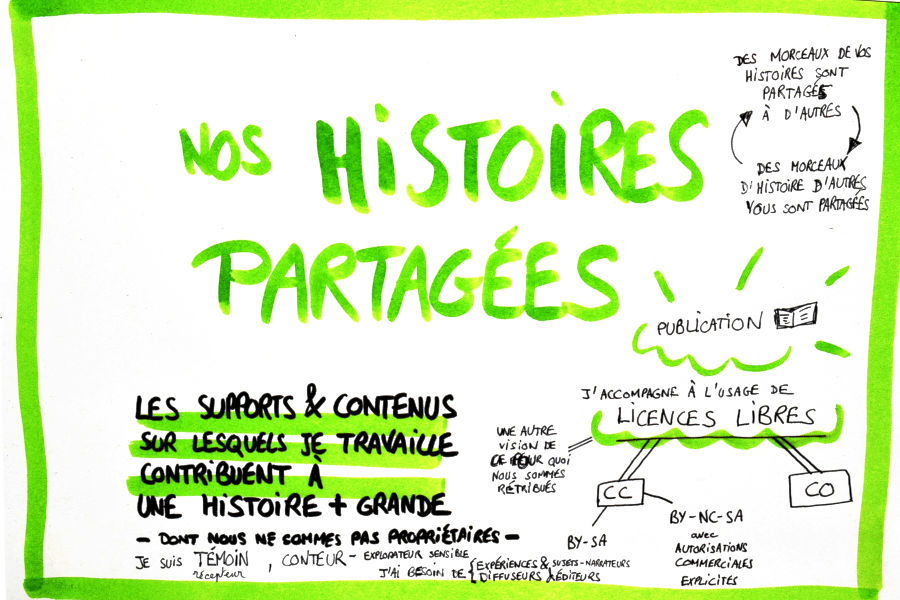 NOS HISTOIRES
PARTAGÉES
DES MORCEAUX DE VOS
HISTOIRES SONT
PARTAGÉS
À D'AUTRES
DES MORCEAUX
D'HISTOIRE D'AUTRES
VOUS SONT PARTAGÉES
PUBLICATION
J'ACCOMPAGNE À L'USAGE DE
LICENCES LIBRES
UNE AUTRE
VISION DE
CE POUR QUOI
NOUS SOMMES
RÉTRIBUÉS
CC
CO
BY-SA
BY-NC-SA
avec
AUTORISATIONS
COMMERCIALES
EXPLICITES
LES SUPPORTS & CONTENUS
SUR LESQUELS JE TRAVAILLE
CONTRIBUENT À
UNE HISTOIRE + GRANDE
— DONT NOUS NE SOMMES PAS PROPRIÉTAIRES —
JE SUIS TÉMOIN, CONTEUR - EXPLORATEUR SENSIBLE
récepteur
J'AI BESOIN DE { EXPÉRIENCES & SUJETS-NARRATEURS
DIFFUSEURS & ÉDITEURS